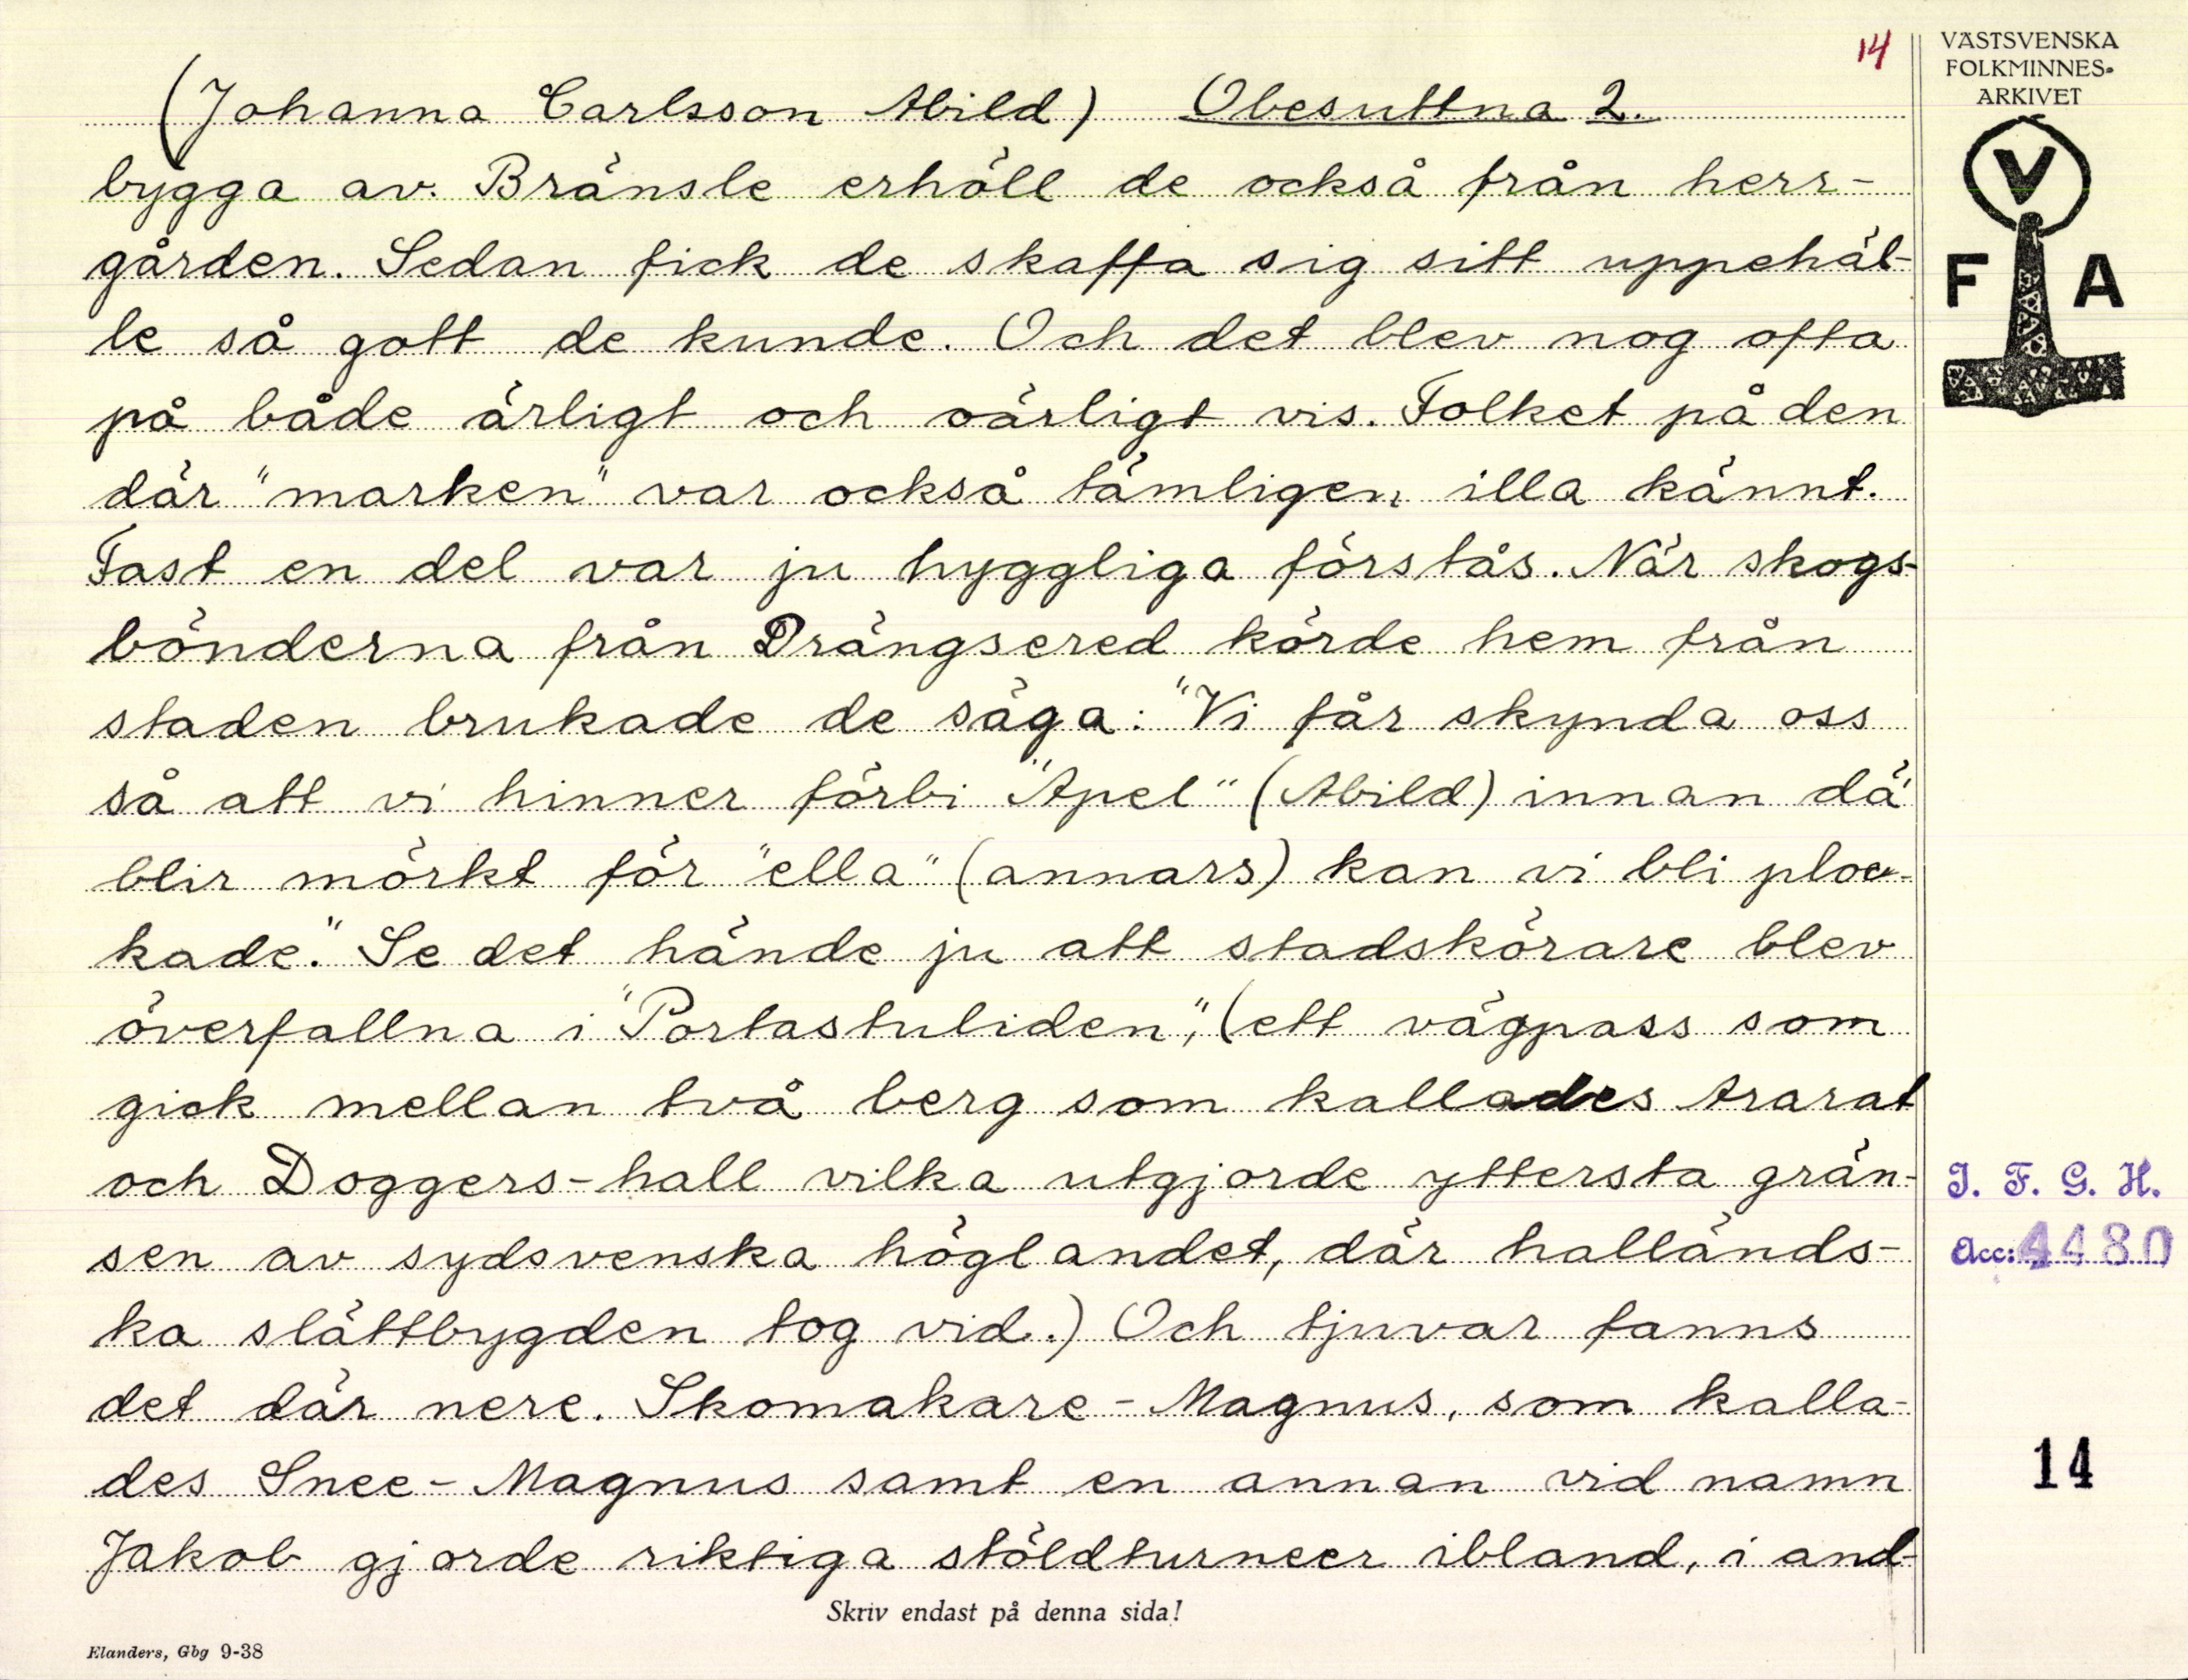 14
VÄSTSVENSKA
FOLKMINNES-
ARKIVET
V
F A
(Johanna Carlsson Abild) Obesuttna 2.
bygga av. Bränsle erhöll de också från herr-
gården. Sedan fick de skaffa sig sitt uppehäl-
le så gott de kunde. Och det blev nog ofta
på både ärligt och oärligt vis. Folket på den
där "marken" var också tämligen illa kännt.
Fast en del var ju hyggliga förstås. När skogs-
bönderna från Drängsered körde hem från
staden brukade de säga: "Vi får skynda oss
så att vi hinner förbi "Apel" (Abild) innan dä
blir mörkt för "ella" (annars) kan vi bli ploc-
kade." Se det hände ju att stadskörare blev
överfallna i "Portastuliden", (ett vägpass som
gick mellan två berg som kallades Ararat
och Doggers-hall vilka utgjorde yttersta grän-
sen av sydsvenska höglandet, där halländs-
ka slättbygden tog vid.) Och tjuvar fanns
det där nere. Skomakare-Magnus, som kalla-
des Snee-Magnus samt en annan vid namn
Jakob gjorde riktiga stöldturneer ibland, i and-
I. F. G. H.
Acc: 4480
14
Skriv endast på denna sida!
Elanders, Gbg 9-38